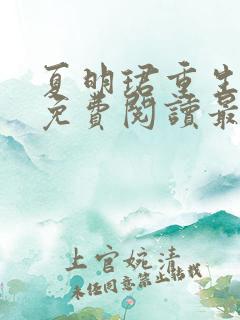 夏明珺重生
免費閱讀最
上官婉清
未經同意禁止轉載